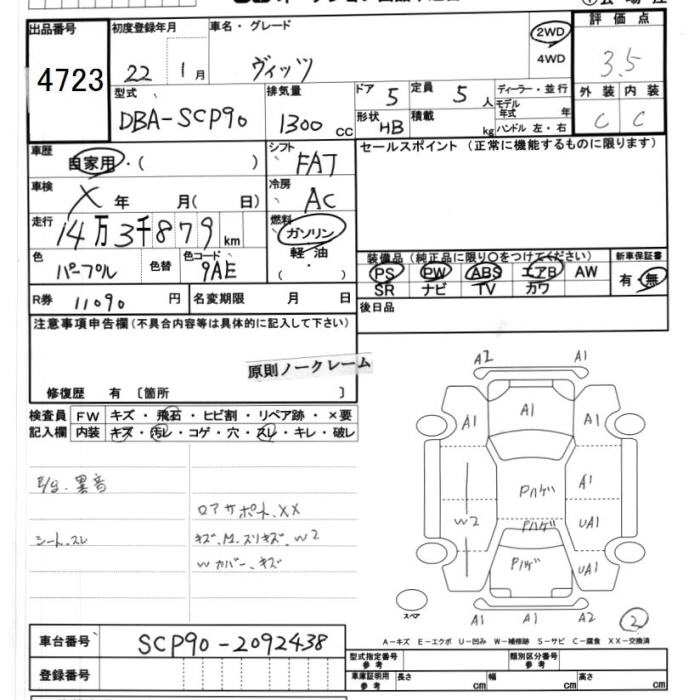 出品番号 初度登録年月 車名・グレード 評価点
4723 22 1月 ヴィッツ 2WD 4WD 3.5
型式 排気量 ドア 5 定員 5人 ディーラー・並行 外装 内装
DBA-SCP90 1300cc 形状 HB 積載 kg モデル年式 年 ハンドル 左・右 C C
車歴 自家用・( ) シフト FAT セールスポイント(正常に機能するものに限ります)
車検 X 年 月( 日) 冷房 AC
走行 14万3千879km 燃料 ガソリン 軽油 ( ・ )
色 パープル 色替 色コード 9AE 装備品(純正品に限り○をつけてください) 新車保証書
PS PW ABS エアB AW 有・無
SR ナビ TV カワ
R券 11090 円 名変期限 月 日 後日品
注意事項申告欄(不具合内容等は具体的に記入して下さい)
原則ノークレーム
修復歴 有 〔箇所 〕
検査員 FW キズ・飛石・ヒビ割・リペア跡・×要
記入欄 内装 キズ・汚レ・コゲ・穴・スレ・キレ・破レ
E/g.異音
ロアサポート.XX
シート.スレ キズ.M.スリキズ.W2
Wカバー.キズ
A2 A1
A1 A1 A1
Pハゲ A1
W2 Pハゲ UA1
Pハゲ UA1
スペア A1 A1 A2 2
A-キズ E-エクボ U-凹み W-補修跡 S-サビ C-腐食 XX-交換済
車台番号 SCP90-2092438 型式指定番号 参考 類別区分番号 参考
登録番号 車庫証明用 参考 長さ cm 幅 cm 高さ cm